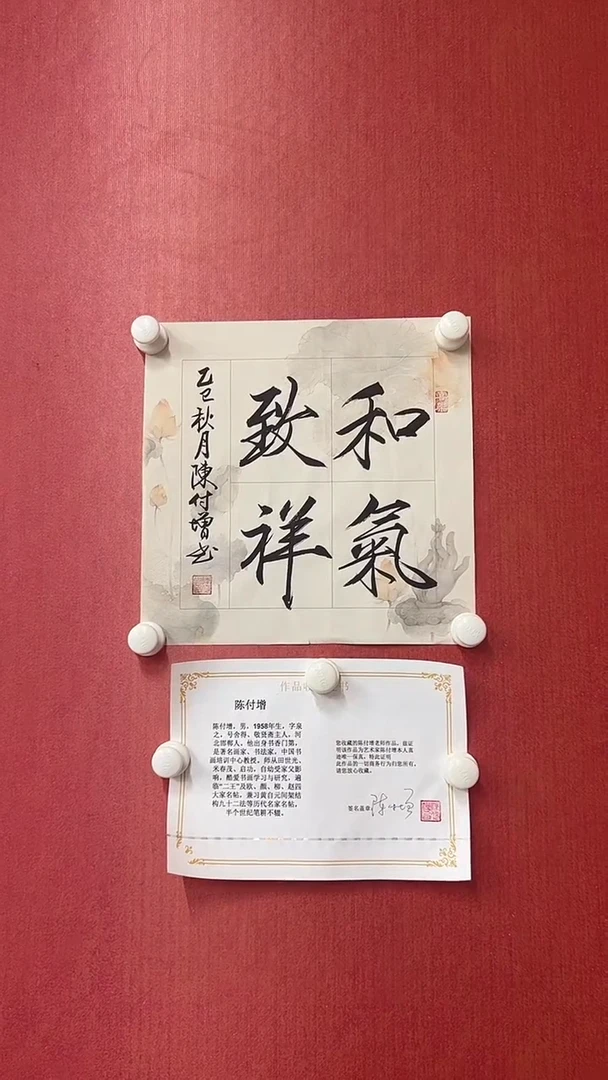 和氣
致祥
乙巳秋月陳付增书
陈付增
陈付增，男，1958年生，字泉
之，号舍得、敬贤斋主人，河
北邯郸人，他出身书香门第，
是著名画家、书法家，中国书
画培训中心教授，师从田世光、
米春茂、启功，自幼受家父影
响，酷爱书画学习与研究，遍
临“二王”及欧、颜、柳、赵四
大家名帖，兼习黄自元间架结
构九十二法等历代名家名帖，
半个世纪笔耕不辍。
您收藏的陈付增老师作品，兹证
明该作品为艺术家陈付增本人真
迹唯一保真，特此证明
此作品的一切商务行为归您所有，
请您放心收藏。
签名盖章